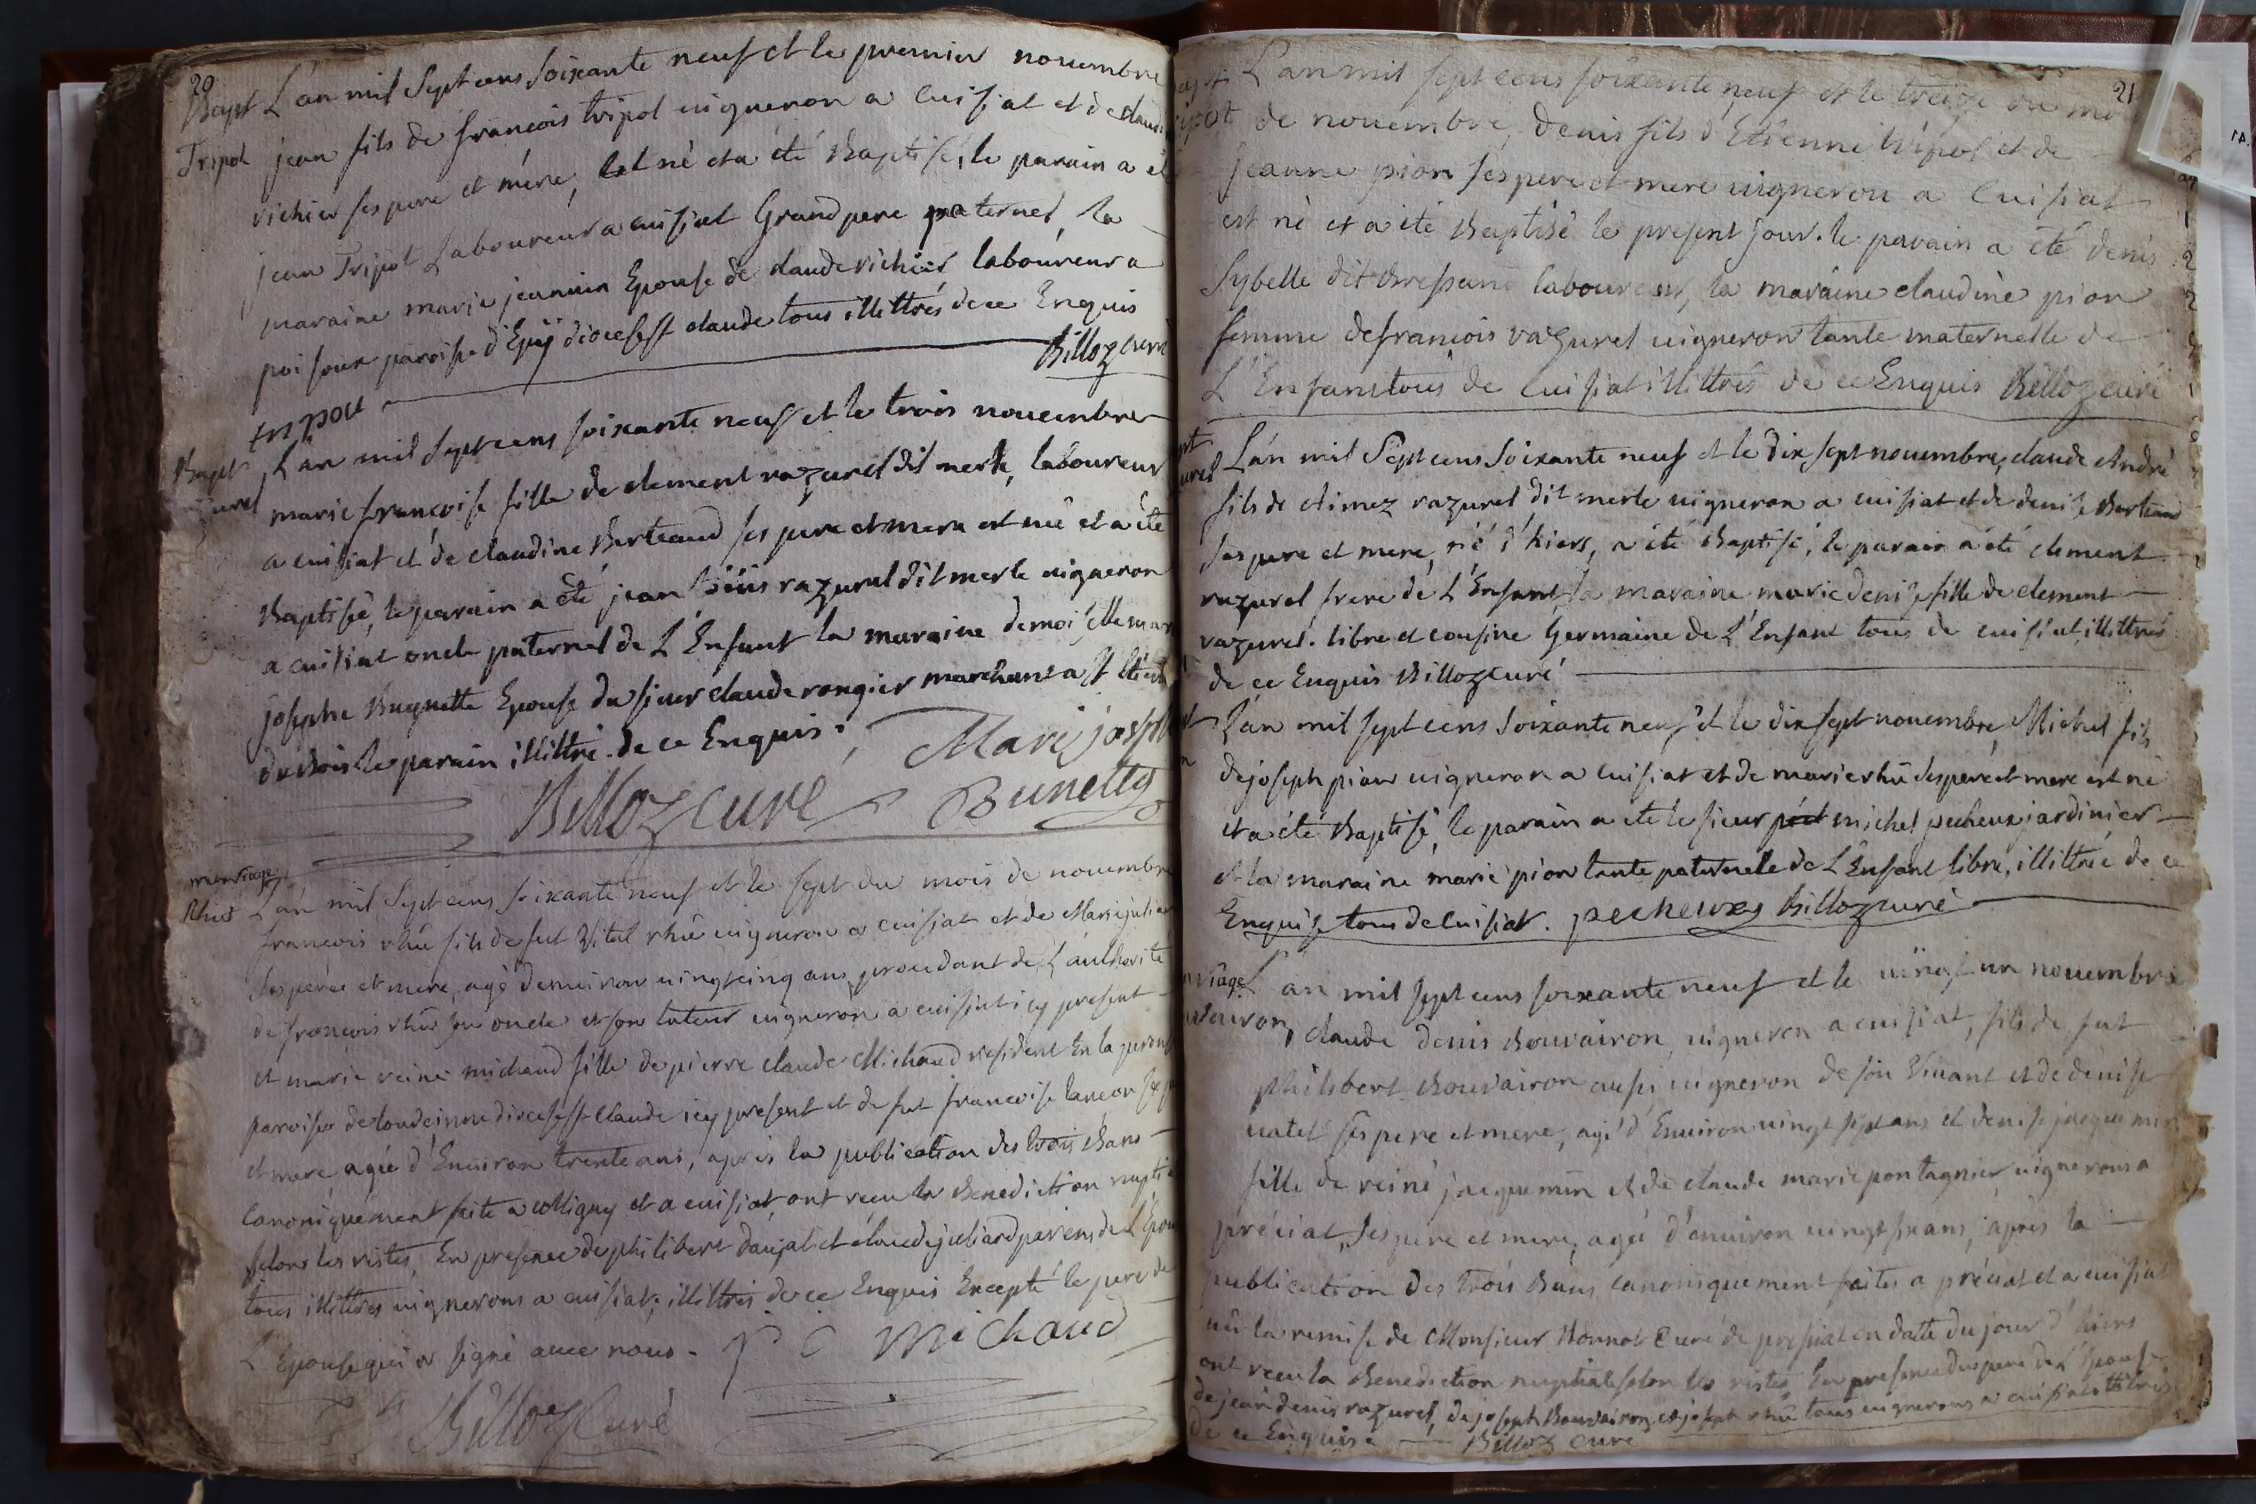 20
Bapt L'an mil Sept cens soixante neuf et le premier nouembre
Tripol jean fils de françois tripol uigneron a Cuisiat et de claud
richier ses pere et mere, est né et a été Baptisé, le parain a
jean Tripol Laboureur a cuisiat Grand pere paternel, la
maraine marie jeannin Epouse de claude richier laboureur a
poisoux paroisse d'Epÿ diocese st claude tous illittrés de ce Enquis
Billoz curé
Bapt L'an mil Sept cens soixante neuf et le trois nouembre
zurel marie françoise fille de clement razurel dit merle, laboureur
a cuisiat et de claudine Berteaud ses pere et mere est née et a été
Baptisée, le parain a été jean razurel dit merle uigneron
a cuisiat oncle paternel de L'Enfant la maraine demoiselle mar
josephe Bugnette Epouse du sieur claude rongier marchant a st
du bois le parain illittré de ce Enquis.
Marie joseph
Billoz curé Bunette
mariage
Rhû L'an mil Sept cens soixante neuf et le sept du mois de nouembre
françois rhû fils de fut Vital rhû uigneron a cuisiat et de Marie
ses pere et mere, agé d'enuiron uingt cinq ans, procedant de L'authorité
de françois rhû son oncle et son tuteur uigneron a cuisiat icy present
et marie reine michaud fille de pierre claude Michaud resident En la
paroisse de diocese st Claude icy present et de fut françoise
et mere agée d'Enuiron trente ans, apres la publication des trois Bans
canoniquement faite a colligny et a cuisiat, ont reçu la Benediction nuptia
selon les rites, En presence de philibert daujat et claude juliard parens de L'Epou
tous illittrés uignerons a cuisiat, illittrés de ce Enquis Excepté le pere de
L'Epouse qui a signé auec nous.
P C Michaud
Billoz Curé
21
L'an mil sept cens soixante neuf et le treize du mo
de nouembre, denis fils d'Etienne tripol et de
jeanne pion ses pere et mere uigneron a Cuisiat
est né et a été Baptisé le present jour. le parain a été denis
Sybelle dit Bressan laboureur, la maraine claudine pion
femme de françois razurel uigneron tante maternelle de
L'Enfant tous de Cuisiat illittrés de ce Enquis Billoz curé
L'an mil Sept cens Soixante neuf et le dix sept nouembre, claude André
fils de razurel dit merle uigneron a cuisiat et de denise Berteaud
ses pere et mere, né d'hiers, a été Baptisé, le parain a été clement
razurel frere de L'Enfant, la maraine marie denise fille de clement
razurel. libre et cousine Germaine de L'Enfant tous de cuisiat, illittrés
de ce Enquis Billoz curé
L'an mil sept cens soixante neuf et le dix sept nouembre, Michel fils
de joseph pion uigneron a cuisiat et de marie rhû ses pere et mere est né
et a été Baptisé, le parain a été le sieur michel pecheux jardinier
et la maraine marie pion tante paternele de L'Enfant libre, illittrée de ce
Enquise tous de cuisiat. pecheux Billoz curé
L'an mil sept cens soixante neuf et le uingt un nouembre
claude denis Bouvairon, uigneron a cuisiat, fils de fut
philibert Bouvairon aussi uigneron de son Viuant et de denise
uatel ses pere et mere, agé d'Enuiron uingt sept ans et denise jacquemin
fille de reiné jacquemin et de claude marie pontagnier uignerons a
préciat, ses pere et mere, agée d'enuiron uingt six ans, apres la
publication des trois Bans canoniquement faites a préciat et a cuisiat
uû la remise de Monsieur Curé de presiat en datte du jour d'hiers
ont reçu la Benediction nuptiale selon les rites, En presence du pere de L'Epouse
de jean denis razurel, de joseph Bouvairon, et joseph rhû tous uignerons a cuisiat illitrés
de ce Enquis Billoz curé